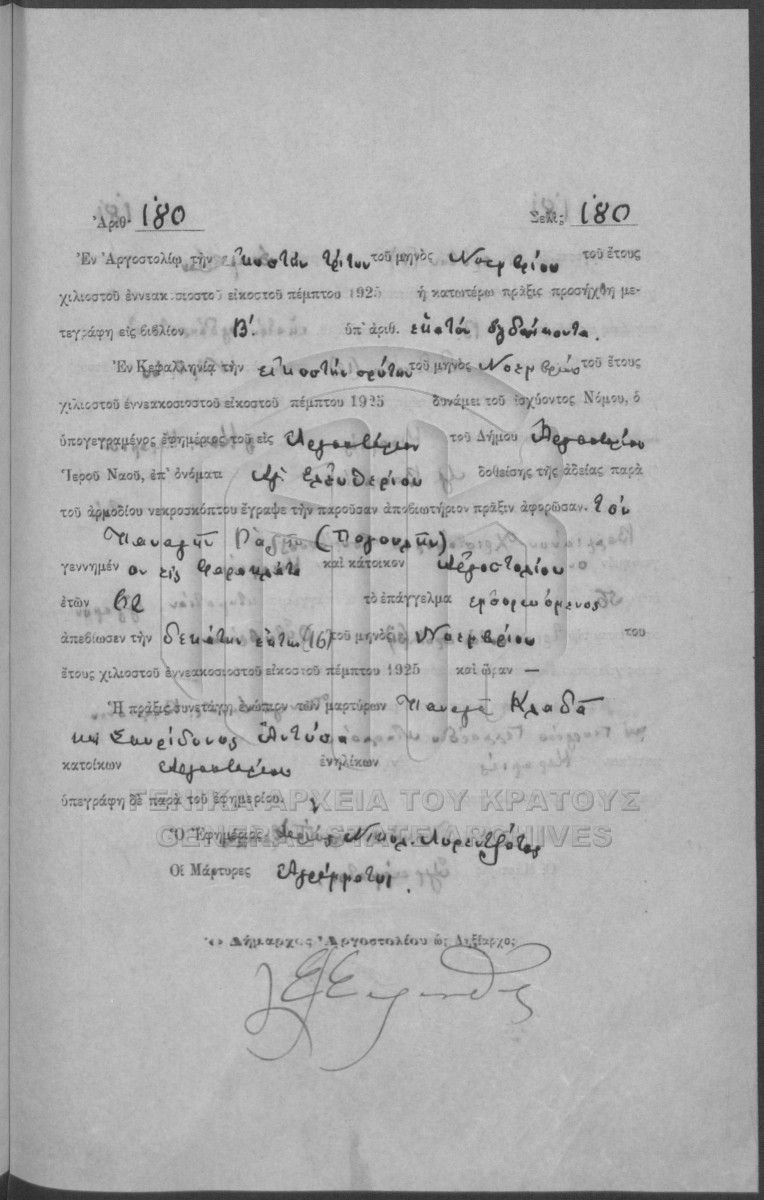 Ἀριθ. 180 Σελὶς 180
Ἐν Ἀργοστολίῳ τὴν εἰκοστὴν τρίτην τοῦ μηνὸς Νοεμβρίου τοῦ ἔτους
χιλιοστοῦ ἐννεακοσιοστοῦ εἰκοστοῦ πέμπτου 1925 ἡ κατωτέρω πρᾶξις προσήχθη με-
τεγράφη εἰς βιβλίον Β΄. ὑπ' ἀριθ. ἑκατὸν ὀγδοήκοντα.
Ἐν Κεφαλληνίᾳ τὴν εἰκοστὴν πρώτην τοῦ μηνὸς Νοεμβρίου τοῦ ἔτους
χιλιοστοῦ ἐννεακοσιοστοῦ εἰκοστοῦ πέμπτου 1925 δυνάμει τοῦ ἰσχύοντος Νόμου, ὁ
ὑπογεγραμένος ἐφημέριος τοῦ εἰς Ἀργοστόλιον τοῦ Δήμου Ἀργοστολίου
Ἱεροῦ Ναοῦ, ἐπ' ὀνόματι Ἁγ. Ἐλευθερίου δοθείσης τῆς ἀδείας παρὰ
τοῦ ἁρμοδίου νεκροσκόπτου ἔγραψε τὴν παροῦσαν ἀποβιωτήριον πρᾶξιν ἀφορῶσαν. τὸν
Παναγῆν
γεννημένον εἰς Φαρακλάτα καὶ κάτοικον Ἀργοστολίου
ἐτῶν 62 τὸ ἐπάγγελμα ἐμπορευόμενος
ἀπεβίωσεν τὴν δεκάτην ἕκτην (16) τοῦ μηνὸς Νοεμβρίου του
ἔτους χιλιοστοῦ ἐννεακοσιοστοῦ εἰκοστοῦ πέμπτου 1925 καὶ ὥραν —
Ἡ πρᾶξις συνετάγη ἐνώπιον τῶν μαρτύρων Παναγῆ Κλαδᾶ
καὶ Σπυρίδωνος Ἀντύπα
κατοίκων Ἀργοστολίου ἐνηλίκων
ὑπεγράφη δὲ παρὰ τοῦ ἐφημερίου.
ΓΕΝΙΚΑ ΑΡΧΕΙΑ ΤΟΥ ΚΡΑΤΟΥΣ
GENERAL STATE ARCHIVES
Ὁ Ἐφημέριος Ἱερεὺς Νικόλ. Λορεντζάτος
Οἱ Μάρτυρες Ἀγράμματοι.
Ὁ Δήμαρχος Ἀργοστολίου ὡς Ληξίαρχος